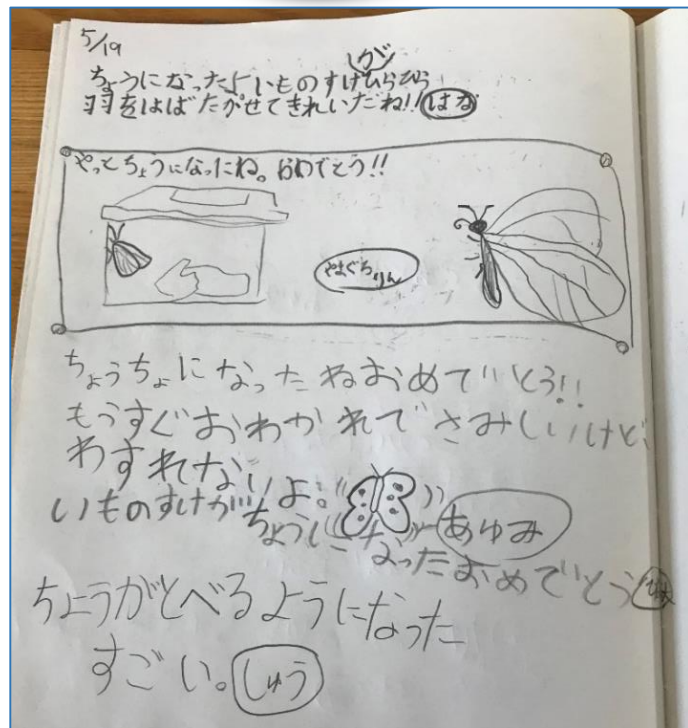 5/19
ちょうになったよいものすけひらひら
羽をはばたかせてきれいだね!!はな
やっとちょうになったね。おめでとう!!
やまぐちりん
ちょうちょになったねおめでとう!!
もうすぐおわかれでさみしいけど、
わすれないよ。
あゆみ
いものすけがちょうになったおめでとう
ちょうがとべるようになった
すごい。しゅう